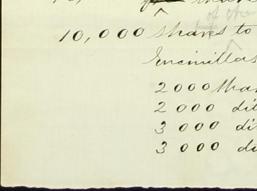 of the
10,000 shares to
Encinillas
2000 shar
2000 dit
3000 dit
3000 di